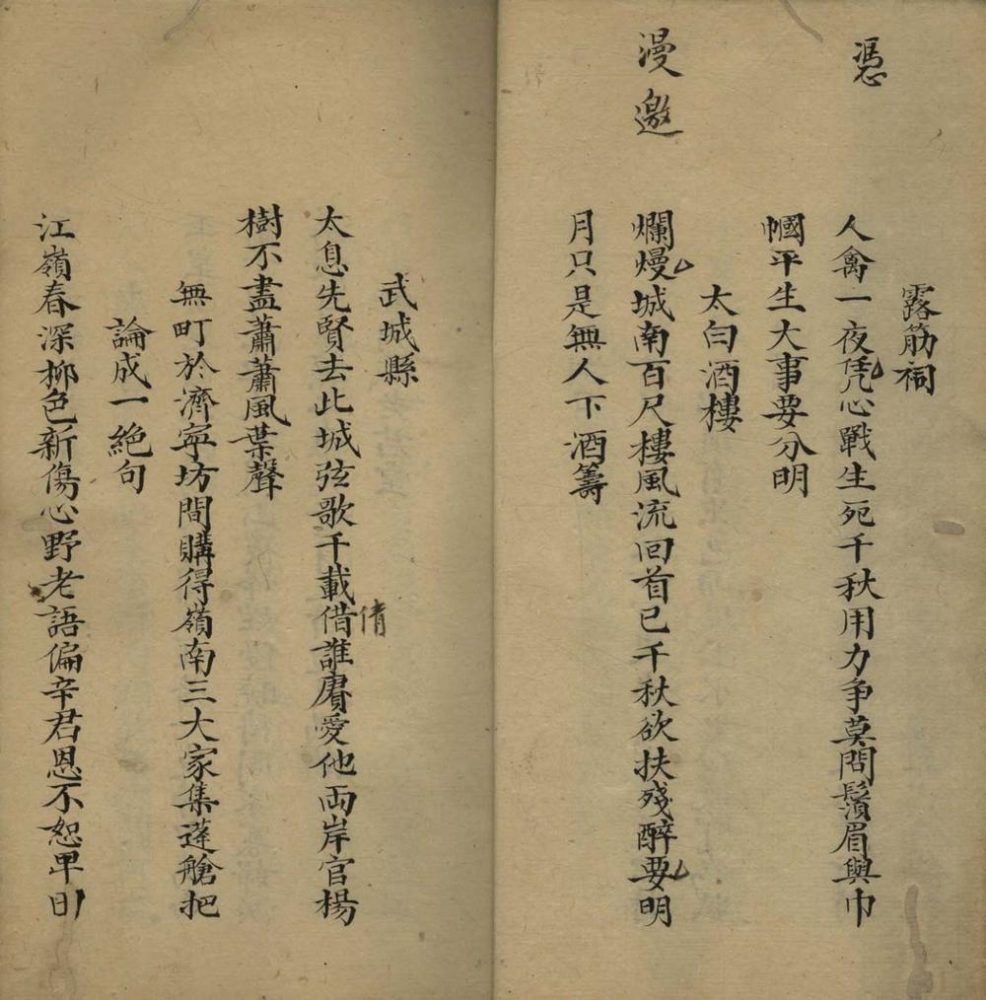 露筋祠
憑
人禽一夜凭心戰生死千秋用力争莫問鬚眉與巾
幗平生大事要分明
太白酒樓
漫邀
爛熳城南百尺樓風流回首已千秋欲扶殘醉要明
月只是無人下酒籌
武城縣
倩
太息先賢去此城弦歌千載借誰賡愛他両岸官楊
樹不盡蕭蕭風葉聲
無町於濟寧坊間購得嶺南三大家集蓬艙把
論成一絕句
江嶺春深栁色新傷心野老語偏辛君恩不恕早